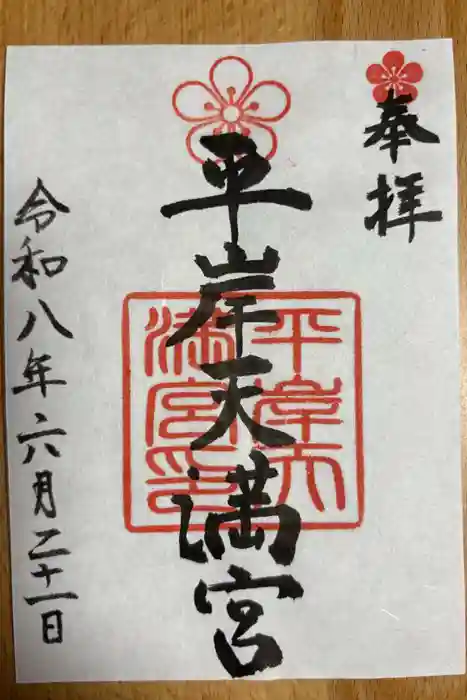 奉拝
平岸天満宮
平岸天満宮印
令和八年六月二十一日